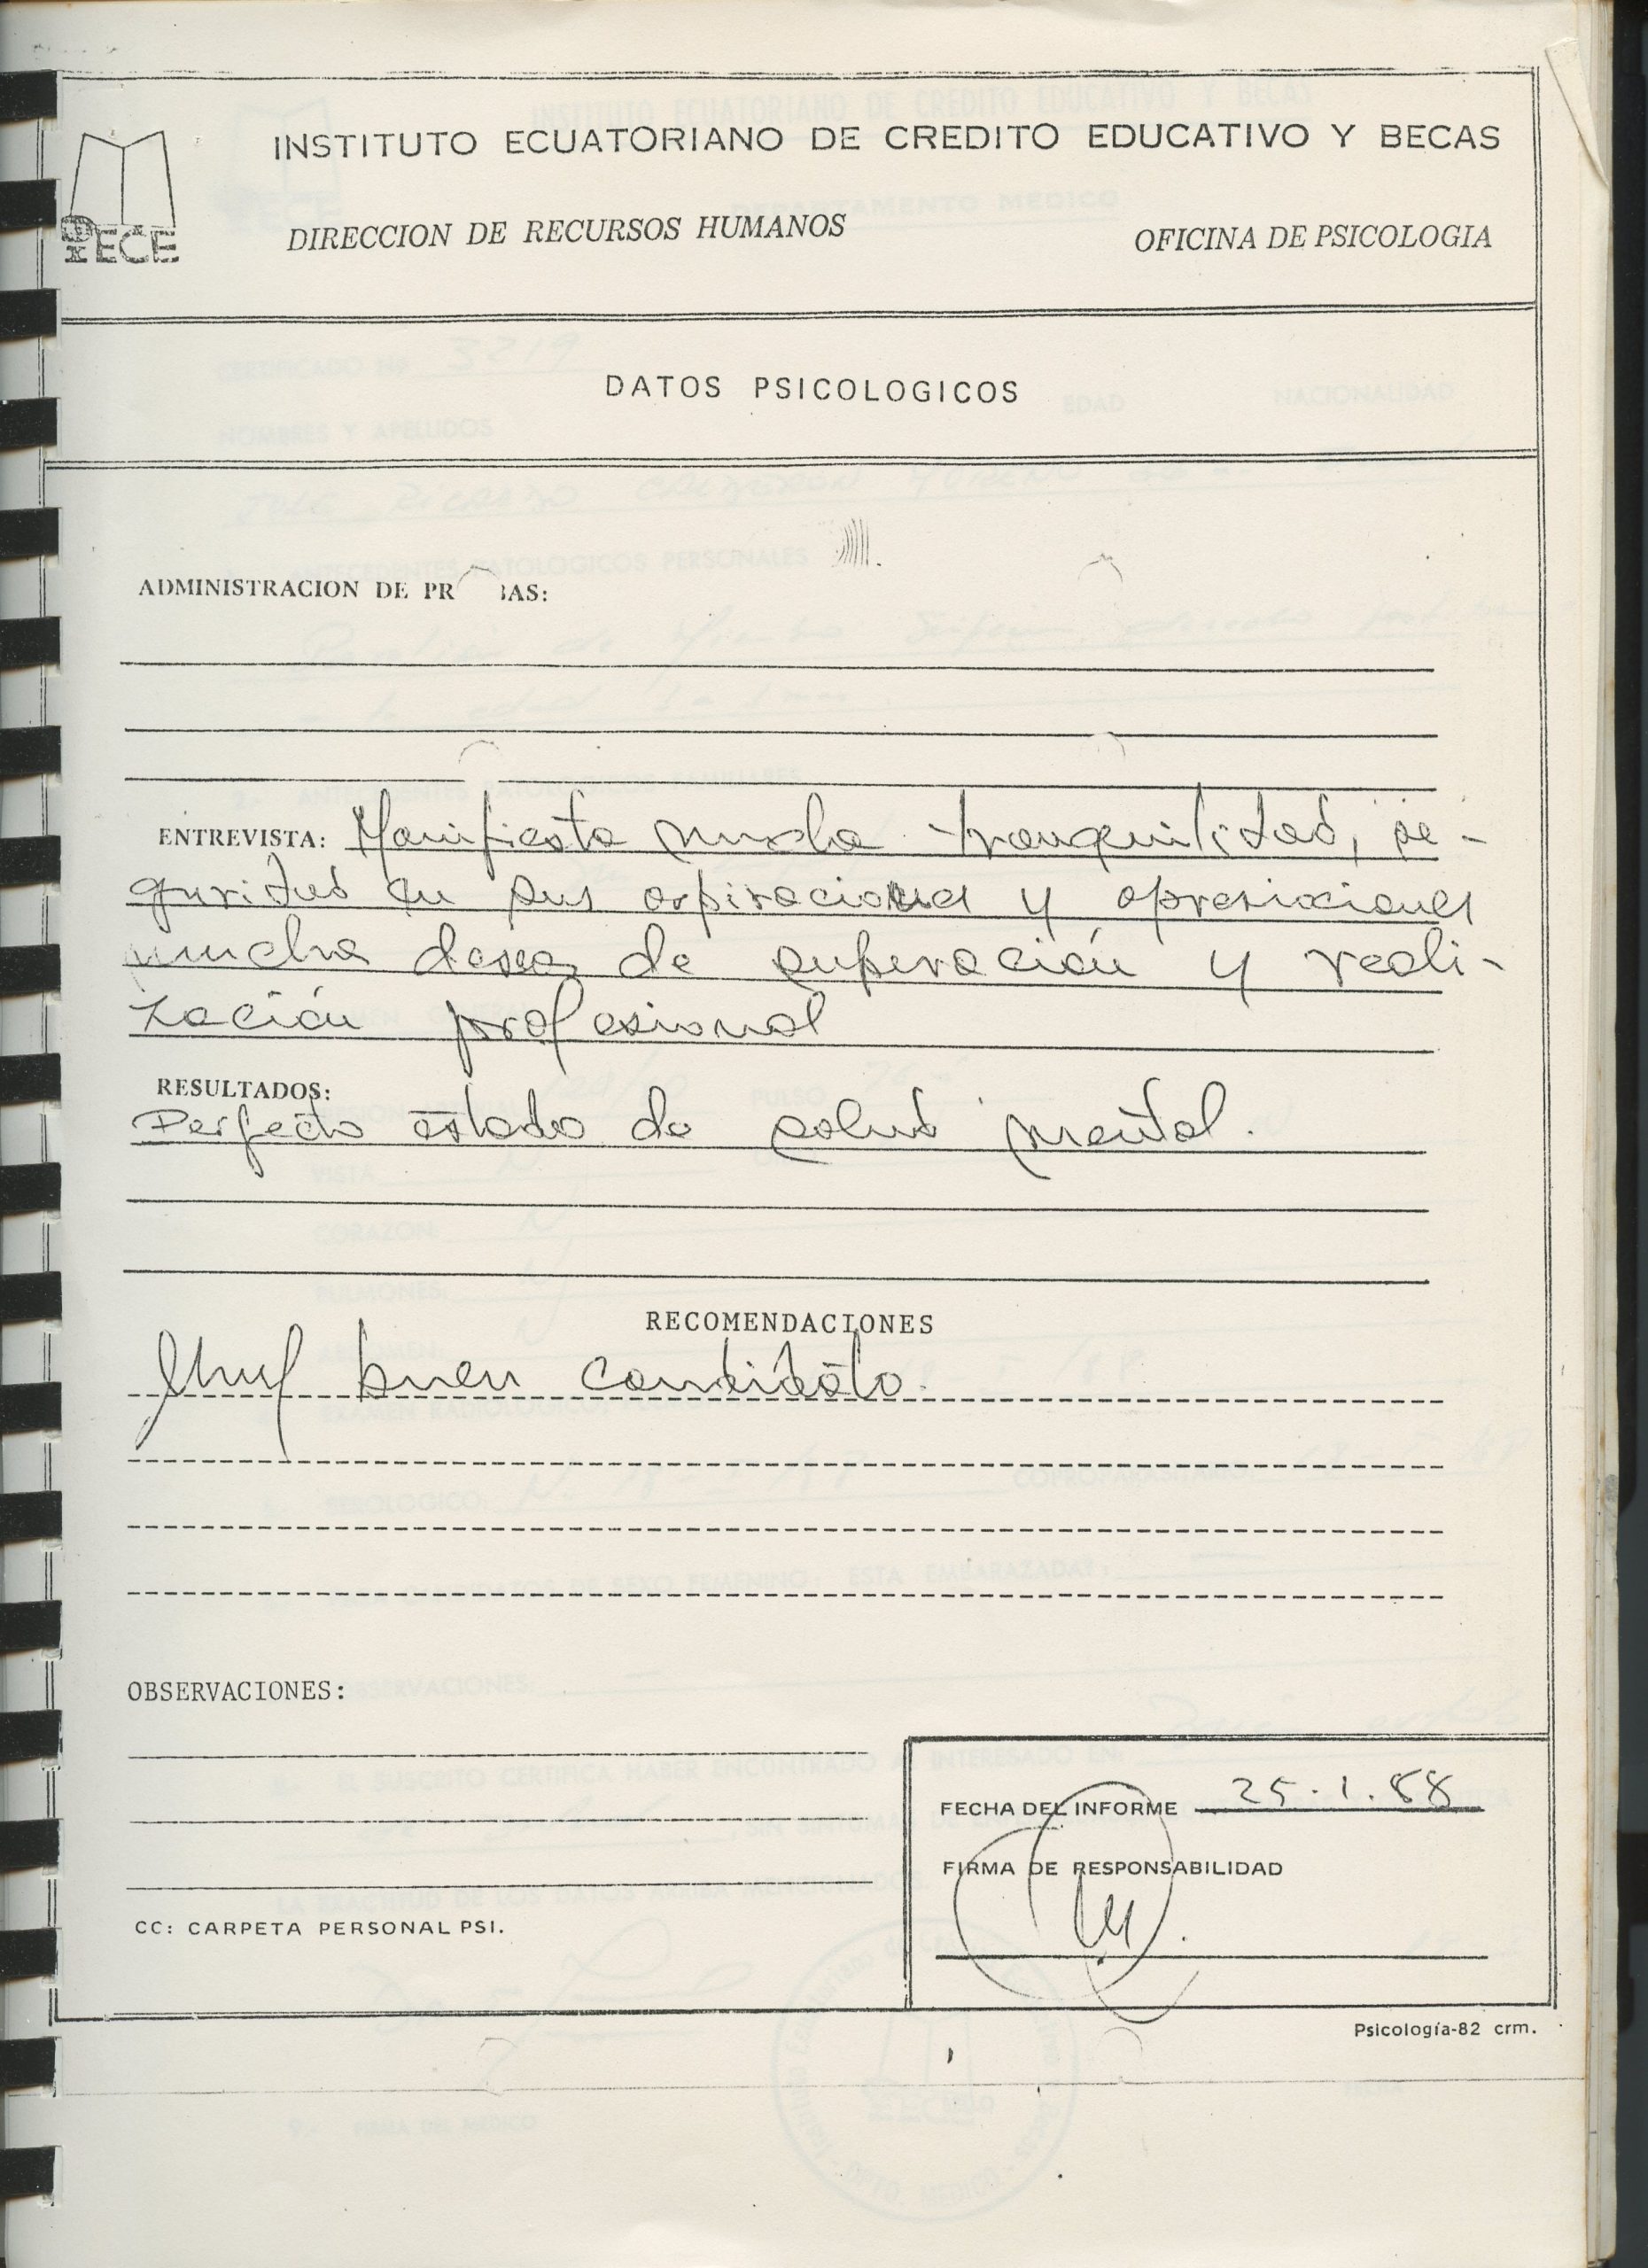 INSTITUTO ECUATORIANO DE CREDITO EDUCATIVO Y BECAS
IECE
DIRECCION DE RECURSOS HUMANOS OFICINA DE PSICOLOGIA
DATOS PSICOLOGICOS
ADMINISTRACION DE PR BAS:
ENTREVISTA: Manifiesta mucha tranquilidad, se-
guridad en sus aspiraciones y apreciaciones
mucho deseo de superación y reali-
zación profesional
RESULTADOS:
Perfecto estado de salud mental.
RECOMENDACIONES
Muy buen candidato.
OBSERVACIONES:
FECHA DEL INFORME 25.1.88
FIRMA DE RESPONSABILIDAD
CC: CARPETA PERSONAL PSI.
Psicología-82 crm.